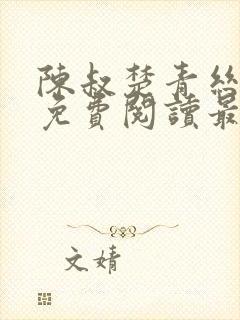 陳叔楚青絲
免費閱讀最
文婧